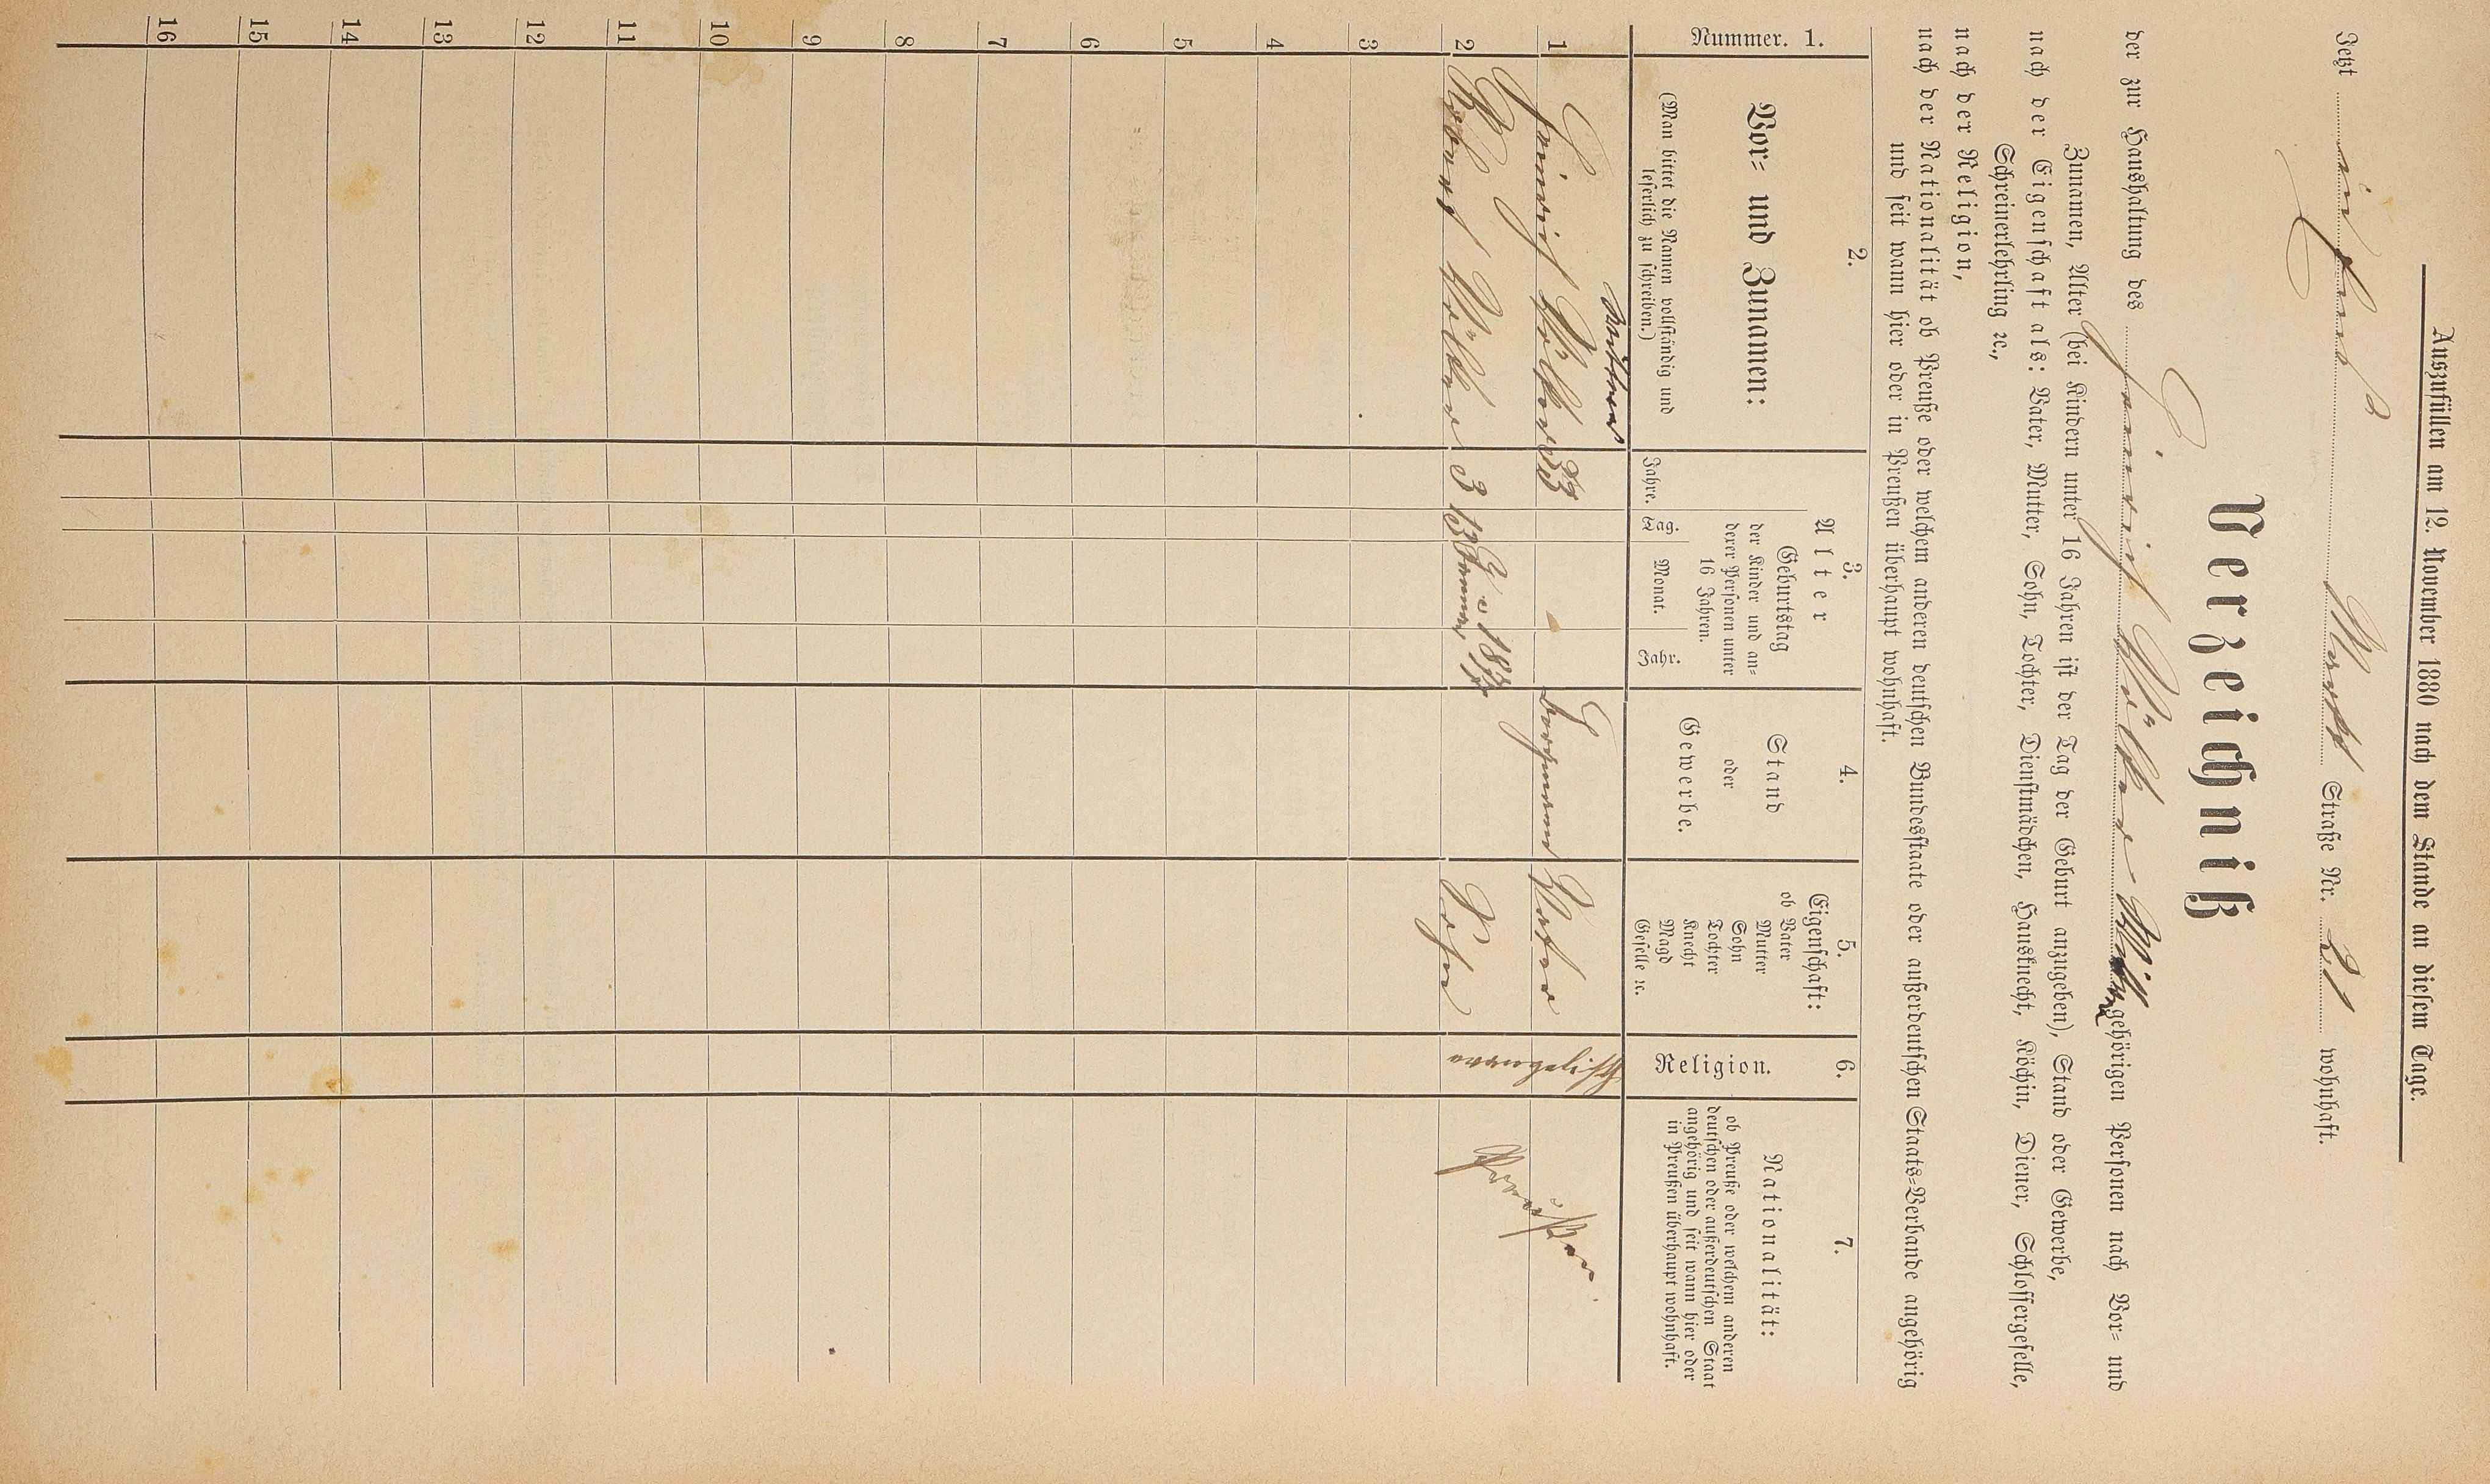 Auszufüllen am 12. November 1880 nach dem Stande an diesem Tage.
Jetzt Straße Nr. 21 wohnhaft.
Verzeichniß
der zur Haushaltung des Heinrich Völker Wittwer gehörigen Personen nach Vor= und
Zunamen, Alter (bei Kindern unter 16 Jahren ist der Tag der Geburt anzugeben), Stand oder Gewerbe,
nach der Eigenschaft als: Vater, Mutter, Sohn, Tochter, Dienstmädchen, Hausknecht, Köchin, Diener, Schlossergeselle,
Schreinerlehrling ꝛc.,
nach der Religion,
nach der Nationalität ob Preuße oder welchem anderen deutschen Bundesstaate oder außerdeutschen Staats=Verbande angehörig
und seit wann hier oder in Preußen überhaupt wohnhaft.
Nummer. 1.
2.
Vor= und Zunamen:
(Man bittet die Namen vollständig und
leserlich zu schreiben.)
3.
Alter
Jahre.
Geburtstag
der Kinder und an=
derer Personen unter
16 Jahren.
Tag.
Monat.
Jahr.
4.
Stand
oder
Gewerbe.
5.
Eigenschaft:
ob Vater
Mutter
Sohn
Tochter
Knecht
Magd
Geselle ꝛc.
6.
Religion.
7.
Nationalität:
ob Preuße oder welchem anderen
deutschen oder außerdeutschen Staat
angehörig und seit wann hier oder
in Preußen überhaupt wohnhaft.
Wittwer
1 Heinrich Völker 33 Vater
2 Robert Völker 3 13 Januar 1877 Sohn
Preußen
3
4
5
6
7
8
9
10
11
12
13
14
15
16